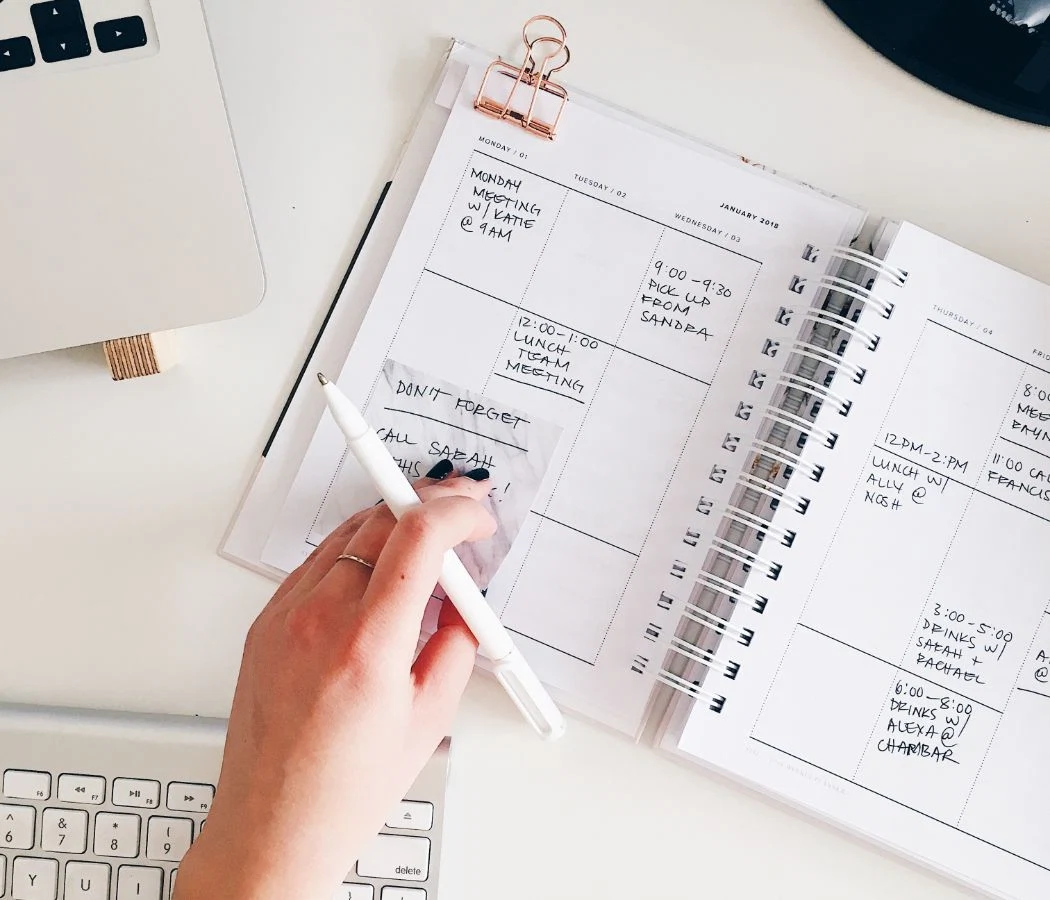 MONDAY / 01
MONDAY
MEETING
W/ KATIE
@ 9AM
TUESDAY / 02
12:00-1:00
LUNCH
TEAM
MEETING
JANUARY 2018
WEDNESDAY / 03
9:00-9:30
PICK UP
FROM
SANDRA
DON'T FORGET
CALL SARAH
THURSDAY / 04
12PM-2:PM
LUNCH W/
ALLY @
NOSH
FRID
8:00
MEE
11:00 CAL
FRANCIS
3:00-5:00
DRINKS W/
SARAH +
RACHAEL
6:00-8:00
DRINKS W/
ALEXA @
CHAMBAR
A
@
F6
F7
F8
F9
^
6
&
7
*
8
(
9
Y
U
I
}
delete